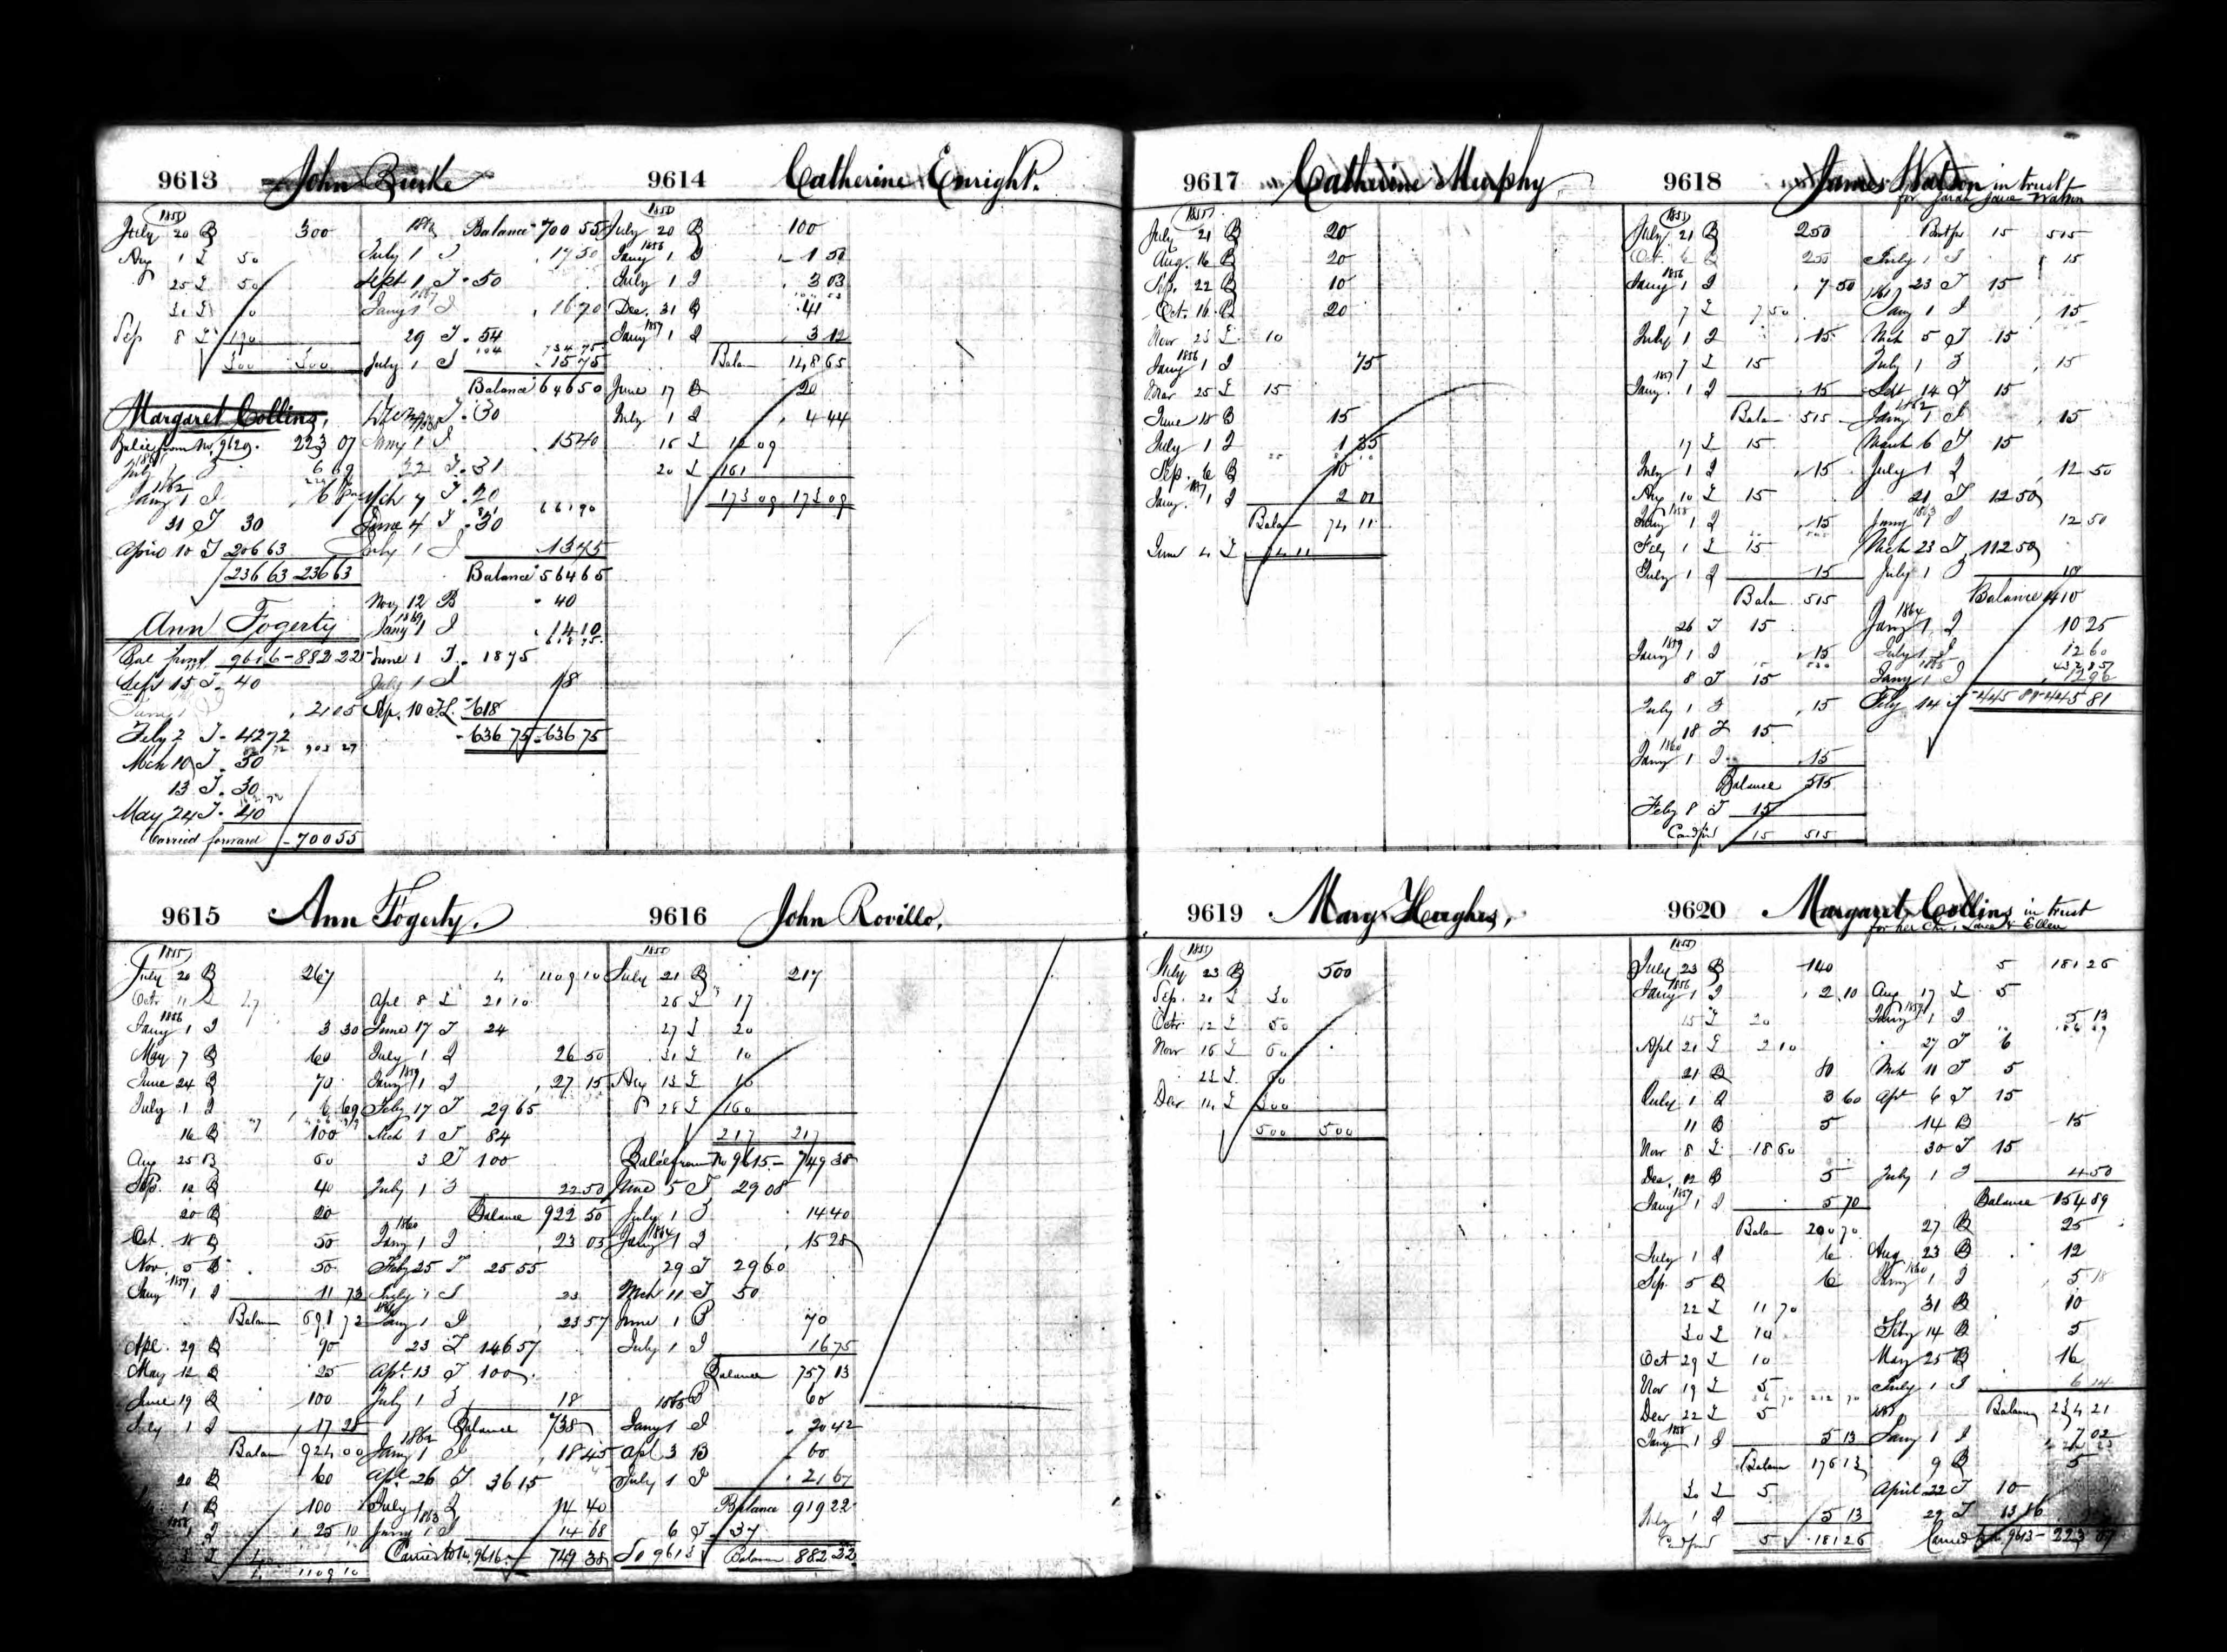 9613 John Burke
1855
July 20 B 300
Aug 1 L 50
25 L 50
Sep 8 L 190
300 300
Margaret Collins,
Balce from No. 9620. 223 07
July 1 I 6 69
1862
Jany 1 I
31 T 30
April 10 T 206 63
236 63 236 63
Ann Fogerty
Bal from 9616 - 882 22
Sept 15 T 40
21 05
Feby 2 T 42 72
Mch 10 T 30
13 T 30
May 24 T 40
Carried forward 700 55
Balance 700 55
July 1 I 17 50
Sept 1 T 50
1867
Jany 1 I 16 70
29 T 54
104 734 75
July 1 I 15 75
Balance 646 50
30
Jany 1 I 15 40
22 T 31
Mch 4 T 20
661 90
June 4 T 30
July 1 I 13 45
Balance 564 65
Nov 12 B 40
1869
Jany 1 I 14 10
618 75
June 1 T 18 75
July 1 I 18
Sep. 10 T.L. 618
636 75 636 75
9614 Catherine Enright.
1855
July 20 B 100
1856
Jany 1 I 1 50
July 1 I 3 03
Dec. 31 B 41
1857
Jany 1 I 3 12
Balan 148 65
June 17 B 20
July 1 I 4 44
15 L 12 09
20 L 161
173 09 173 09
9615 Ann Fogerty.
1855
July 20 B 267
Octr 11 L 27
1856
Jany 1 I 3 30
May 7 B 60
June 24 B 70
July 1 I 6 69
16 B 100
Aug 25 B 60
Sep. 12 B 40
20 B 20
Oct. 18 B 50
Nov 5 B 50
1857
Jany 1 I 11 73
Balan 691 72
Apl. 29 B 90
May 12 B 25
June 19 B 100
July 1 I 17 28
Balan 924 00
20 B 60
1 B 100
1858
1 I 25 10
4 1109 10
4 1109 10
Apl 8 L 21 10
June 17 T 24
July 1 I 26 50
1859
Jany 1 I 27 15
Feby 17 T 29 65
Mch 1 T 84
3 T 100
July 1 I 22 50
Balance 922 50
1860
Jany 1 I 23 05
Feby 25 T 25 55
July 1 I 23
1861
Jany 1 I 23 57
23 T 146 57
Apl. 13 T 100
July 1 I 18
Balance 738
1862
Jany 1 I 18 45
Apl. 26 T 36 15
July 1 I 14 40
1863
Jany 1 I 14 68
Carried to No. 9616 - 749 38
9616 John Rovillo,
1855
July 21 B 217
26 L 17
27 L 20
31 L 10
Aug 13 L 10
28 L 160
217 217
Balce from No 9615 - 749 38
June 5 T 29 08
July 1 I 14 40
1864
Jany 1 I 15 28
29 T 29 60
Mch 11 T 50
June 1 B 70
July 1 I 16 75
Balance 757 13
B 60
1865
Jany 1 I 20 42
Apl 3 B 60
July 1 I 21 67
Balance 919 22
6 T 37
To 9613 Balance 882 22
9617 Catherine Murphy,
1855
July 21 B 20
Aug. 16 B 20
Sep. 22 B 10
Oct. 16 B 20
Nov 23 L 10
1856
Jany 1 I 75
Mar 25 L 15
June 18 B 15
July 1 I 1 35
Sep. 6 B 10
1857
Jany. 1 I 2 01
Balan 74 11
June 4 L 74 11
9618 James Watson in trust
for Sarah Jane Watson
1855
July 21 B 250
Oct. 6 B 250
1856
Jany 1 I 7 50
7 L 7 50
July 1 I 15
7 L 15
1857
Jany. 1 I 15
Balan 515
17 L 15
July 1 I 15
Aug 10 L 15
1858
Jany 1 I 15
Feby 1 L 15
July 1 I 15
Balan 515
26 T 15
1859
Jany 1 I 15
8 T 15
July 1 I 15
18 T 15
1860
Jany 1 I 15
Balance 515
Feby 8 T 15
Card ford 15 515
Brot for 15 515
July 1 I 15
23 T 15
1861
Jany 1 I 15
Mch 5 T 15
July 1 I 15
Sept 14 T 15
1862
Jany 1 I 15
March 6 T 15
July 1 I 12 50
21 T 12 50
1863
Jany 1 I 12 50
Mch 23 T 112 50
July 1 I 10
Balance 410
1864
Jany 1 I 10 25
July 1 I 12 60
1865 432 85
Jany 1 I 12 96
Feby 14 T 445 81 445 81
9619 Mary Hughes,
1855
July 23 B 500
Sep. 21 L 30
Octr. 12 L 50
Nov 16 L 60
23 L 60
Dec 14 L 300
500 500
9620 Margaret Collins in trust
for her Chn, Laura & Ellen
1855
July 23 B 140
1856
Jany 1 I 2 10
15 L 20
Apl 21 L 2 10
21 B 80
July 1 I 3 60
11 B 5
Nov 8 L 18 60
Dec. 12 B 5
1857
Jany 1 I 5 70
Balan 200 70
July 1 I 6
Sep. 5 B 6
22 L 11 70
30 L 10
Oct 29 L 10
Nov 19 L 5
Dec 22 L 5
1858
Jany 1 I 5 13
Balan 176 13
30 L 5
July 1 I 5 13
Card ford 5 181 26
5 181 26
Aug 17 L 5
1859
Jany 1 I 5 13
27 T 6
Mch 11 T 5
Apl 6 T 15
14 B 15
30 T 15
July 1 I 4 50
Balance 154 89
27 B 25
Aug 23 B 12
1860
Jany 1 I 5 18
31 B 10
Feby 14 B 5
May 25 B 16
July 1 I 6 14
Balance 234 21
1861
Jany 1 I 7 02
9 B 5
April 22 T 10
29 T 13 16
Carried to No. 9613 - 223 07